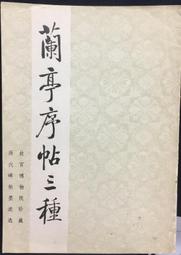 蘭亭序帖三種
故宮博物院珍藏
歷代碑帖墨迹选